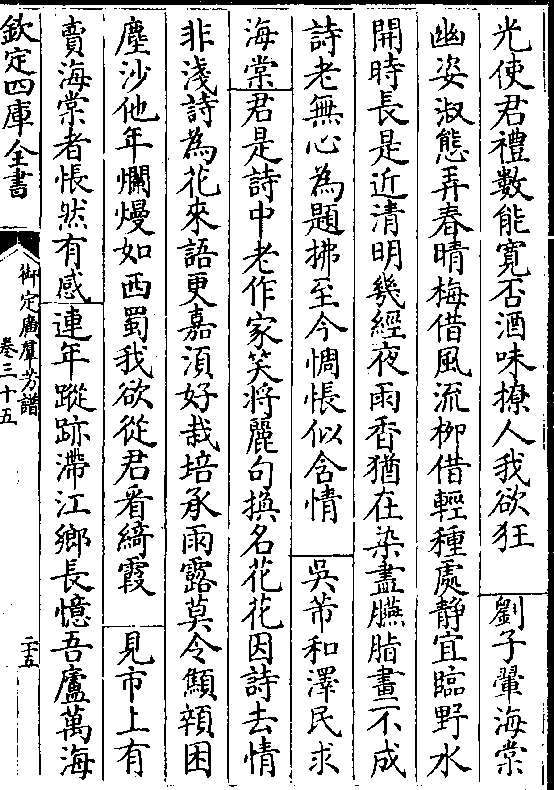 光使君禮數能寛否酒味撩人我欲狂　劉子翬海棠
幽姿淑態弄春晴梅借風流柳借輕種處静宜臨野水
開時長是近清明幾經夜雨香猶在染盡臙脂畫不成
詩老無心為題拂至今惆悵似含情　吳芾和澤民求
海棠君是詩中老作家笑將麗句換名花花因詩去情
非淺詩為花來語更嘉湏好栽培承雨露莫令顦顇困
塵沙他年爛熳如西蜀我欲從君看綺霞　見市上有
賣海棠者悵然有感連年蹤跡滯江鄉長憶吾廬萬海
欽定四庫全書
御定廣羣芳譜
卷三十五
二十五